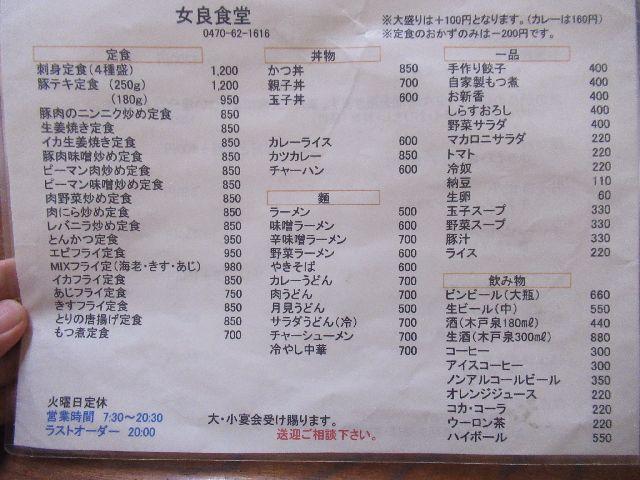 女良食堂
0470-62-1616
※大盛りは+100円となります。(カレーは160円)
※定食のおかずのみは-200円です。
定食
刺身定食(4種盛) 1,200
豚テキ定食 (250g) 1,200
(180g) 950
豚肉のニンニク炒め定食 850
生姜焼き定食 850
イカ生姜焼き定食 850
豚肉味噌炒め定食 850
ピーマン肉炒め定食 850
ピーマン味噌炒め定食 850
肉野菜炒め定食 850
肉にら炒め定食 850
レバニラ炒め定食 850
とんかつ定食 950
エビフライ定食 950
MIXフライ定(海老・きす・あじ) 980
イカフライ定食 850
あじフライ定食 750
きすフライ定食 850
とりの唐揚げ定食 850
もつ煮定食 700
火曜日定休
営業時間 7:30~20:30
ラストオーダー 20:00
丼物
かつ丼 850
親子丼 700
玉子丼 600
カレーライス 600
カツカレー 850
チャーハン 600
麺
ラーメン 500
味噌ラーメン 600
辛味噌ラーメン 700
野菜ラーメン 600
やきそば 600
カレーうどん 700
肉うどん 700
月見うどん 500
サラダうどん(冷) 700
チャーシューメン 700
冷やし中華 700
大・小宴会受け賜ります。
送迎ご相談下さい。
一品
手作り餃子 400
自家製もつ煮 400
お新香 400
しらすおろし 400
野菜サラダ 400
マカロニサラダ 220
トマト 220
冷奴 220
納豆 110
生卵 60
玉子スープ 330
野菜スープ 330
豚汁 330
ライス 220
飲み物
ビンビール(大瓶) 660
生ビール(中) 550
酒(木戸泉180㎖) 440
生酒(木戸泉300㎖) 880
コーヒー 300
アイスコーヒー 300
ノンアルコールビール 350
オレンジジュース 220
コカ・コーラ 220
ウーロン茶 220
ハイボール 550